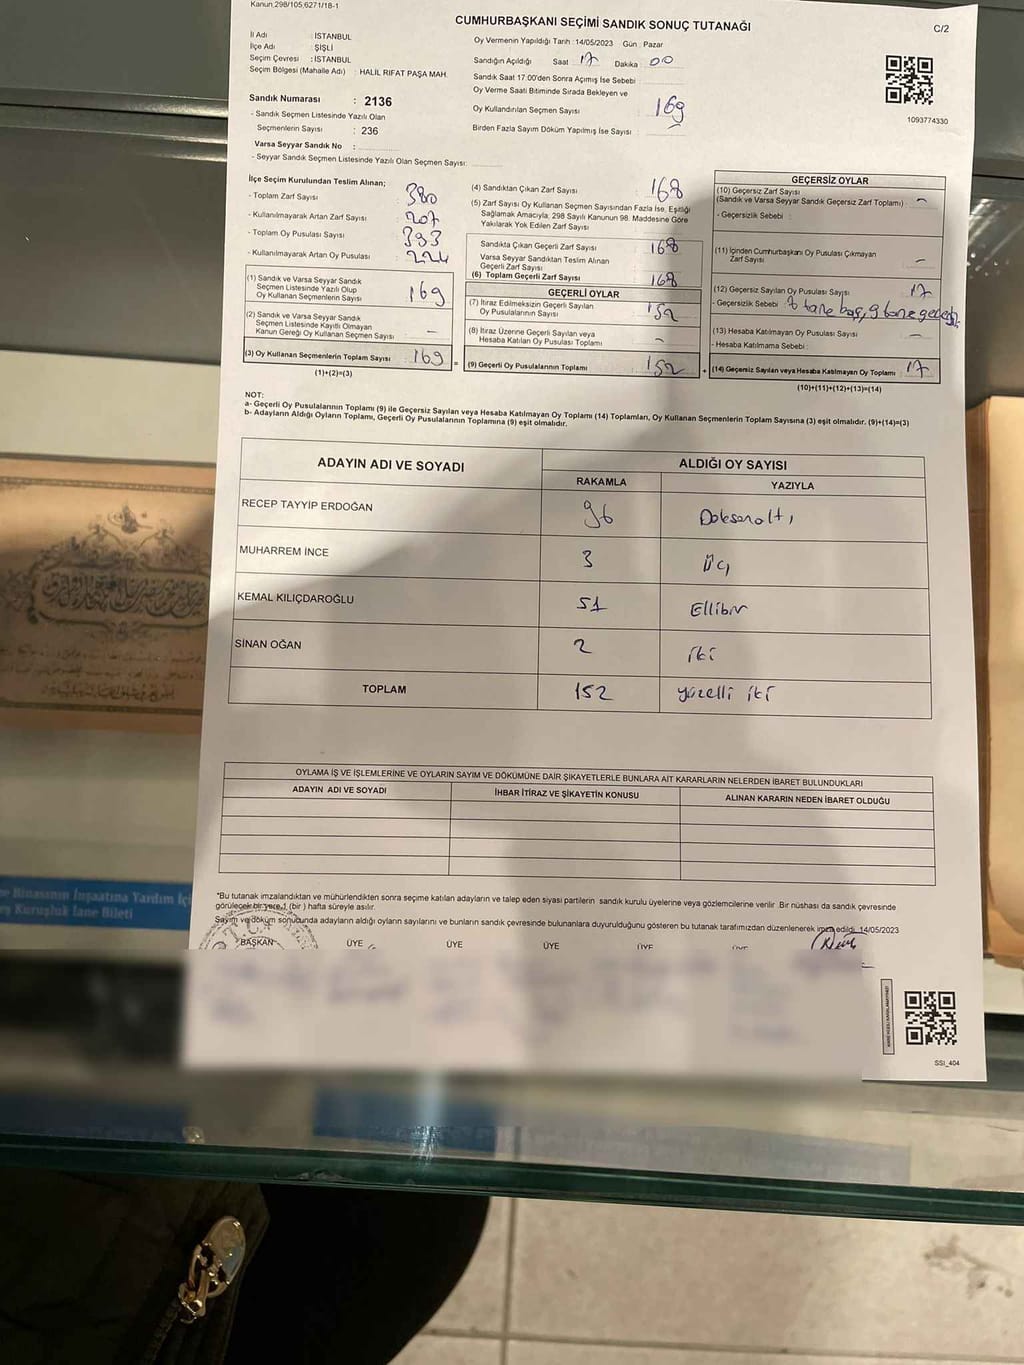 Kanun,298/105,6271/18-1
CUMHURBAŞKANI SEÇİMİ SANDIK SONUÇ TUTANAĞI
C/2
İl Adı : İSTANBUL
İlçe Adı : ŞİŞLİ
Seçim Çevresi : İSTANBUL
Seçim Bölgesi (Mahalle Adı) : HALİL RIFAT PAŞA MAH.
Sandık Numarası : 2136
- Sandık Seçmen Listesinde Yazılı Olan
Seçmenlerin Sayısı : 236
Varsa Seyyar Sandık No :
- Seyyar Sandık Seçmen Listesinde Yazılı Olan Seçmen Sayısı:
Oy Vermenin Yapıldığı Tarih : 14/05/2023 Gün : Pazar
Sandığın Açıldığı Saat 17 Dakika 00
Sandık Saat 17:00'den Sonra Açımış İse Sebebi
Oy Verme Saati Bitiminde Sırada Bekleyen ve
Oy Kullandırılan Seçmen Sayısı 169
Birden Fazla Sayım Döküm Yapılmış İse Sayısı
1093774330
İlçe Seçim Kurulundan Teslim Alınan;
- Toplam Zarf Sayısı : 380
- Kullanılmayarak Artan Zarf Sayısı : 207
- Toplam Oy Pusulası Sayısı : 393
- Kullanılmayarak Artan Oy Pusulası : 224
(1) Sandık ve Varsa Seyyar Sandık
Seçmen Listesinde Yazılı Olup
Oy Kullanan Seçmenlerin Sayısı : 169
(2) Sandık ve Varsa Seyyar Sandık
Seçmen Listesinde Kayıtlı Olmayan
Kanun Gereği Oy Kullanan Seçmen Sayısı : -
(3) Oy Kullanan Seçmenlerin Toplam Sayısı : 169
(1)+(2)=(3)
(4) Sandıktan Çıkan Zarf Sayısı : 168
(5) Zarf Sayısı Oy Kullanan Seçmen Sayısından Fazla İse, Eşitliği
Sağlamak Amacıyla, 298 Sayılı Kanunun 98. Maddesine Göre
Yakılarak Yok Edilen Zarf Sayısı :
Sandıkta Çıkan Geçerli Zarf Sayısı : 168
Varsa Seyyar Sandıktan Teslim Alınan
Geçerli Zarf Sayısı :
(6) Toplam Geçerli Zarf Sayısı : 168
GEÇERLİ OYLAR
(7) İtiraz Edilmeksizin Geçerli Sayılan
Oy Pusulalarının Sayısı : 152
(8) İtiraz Üzerine Geçerli Sayılan veya
Hesaba Katılan Oy Pusulası Toplamı : -
= (9) Geçerli Oy Pusulalarının Toplamı : 152
GEÇERSİZ OYLAR
(10) Geçersiz Zarf Sayısı
(Sandık ve Varsa Seyyar Sandık Geçersiz Zarf Toplamı) : -
- Geçersizlik Sebebi :
(11) İçinden Cumhurbaşkanı Oy Pusulası Çıkmayan
Zarf Sayısı : -
(12) Geçersiz Sayılan Oy Pusulası Sayısı : 17
- Geçersizlik Sebebi : 8 tane boş, 9 tane
(13) Hesaba Katılmayan Oy Pusulası Sayısı : -
- Hesaba Katılmama Sebebi :
+ (14) Geçersiz Sayılan veya Hesaba Katılmayan Oy Toplamı : 17
(10)+(11)+(12)+(13)=(14)
NOT:
a- Geçerli Oy Pusulalarının Toplamı (9) ile Geçersiz Sayılan veya Hesaba Katılmayan Oy Toplamı (14) Toplamları, Oy Kullanan Seçmenlerin Toplam Sayısına (3) eşit olmalıdır. (9)+(14)=(3)
b- Adayların Aldığı Oyların Toplamı, Geçerli Oy Pusulalarının Toplamına (9) eşit olmalıdır.
ADAYIN ADI VE SOYADI
ALDIĞI OY SAYISI
RAKAMLA YAZIYLA
RECEP TAYYİP ERDOĞAN 96 Doksanaltı
MUHARREM İNCE 3 Üç
KEMAL KILIÇDAROĞLU 51 Ellibir
SİNAN OĞAN 2 iki
TOPLAM 152 yüzelli iki
OYLAMA İŞ VE İŞLEMLERİNE VE OYLARIN SAYIM VE DÖKÜMÜNE DAİR ŞİKAYETLERLE BUNLARA AİT KARARLARIN NELERDEN İBARET BULUNDUKLARI
ADAYIN ADI VE SOYADI İHBAR İTİRAZ VE ŞİKAYETİN KONUSU ALINAN KARARIN NEDEN İBARET OLDUĞU
*Bu tutanak imzalandıktan ve mühürlendikten sonra seçime katılan adayların ve talep eden siyasi partilerin sandık kurulu üyelerine veya gözlemcilerine verilir. Bir nüshası da sandık çevresinde
görülecek bir yere 1 (bir) hafta süreyle asılır.
Sayım ve döküm sonucunda adayların aldığı oyların sayılarını ve bunların sandık çevresinde bulunanlara duyurulduğunu gösteren bu tutanak tarafımızdan düzenlenerek imza edildi. 14/05/2023
T.C.
BAŞKAN ÜYE ÜYE ÜYE ÜYE ÜYE
SSI_404
Binasının İnşaatına Yardım İçi
Kuruşluk İane Bileti